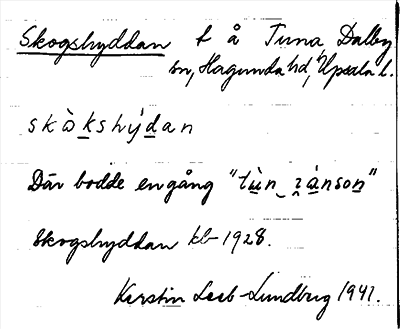 Skogshyddan t å Tuna, Dalby
sn, Hagunda hd, Upsala l.
skɷ̀kshýdan
Där bodde en gång "tùn_ɿánson"
Skogshyddan kb 1928.
Kerstin Leeb-Lundberg 1941.